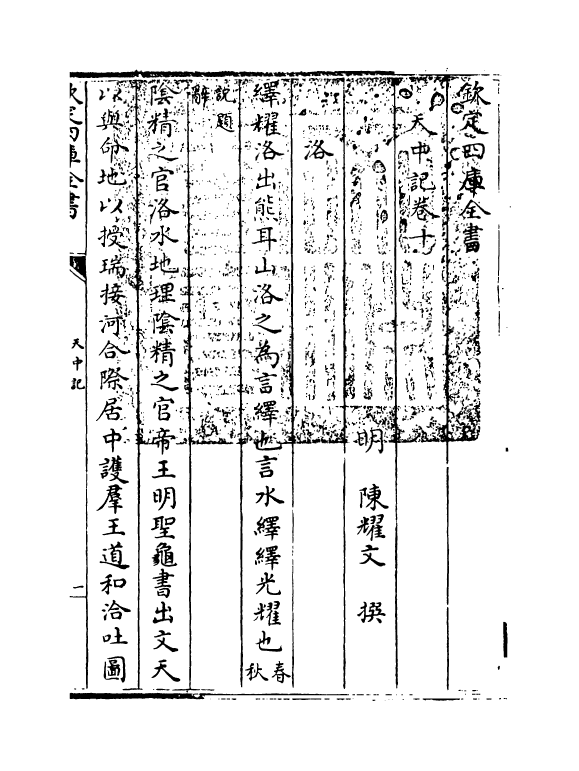 欽定四庫全書
天中記卷十
明 陳耀文 撰
洛
繹耀洛出熊耳山洛之為言繹也言水繹繹光耀也春秋
說題辭
陰精之官洛水地理陰精之官帝王明聖龜書出文天
以與命地以授瑞接河合際居中護羣王道和洽吐圖
欽定四庫全書
天中記